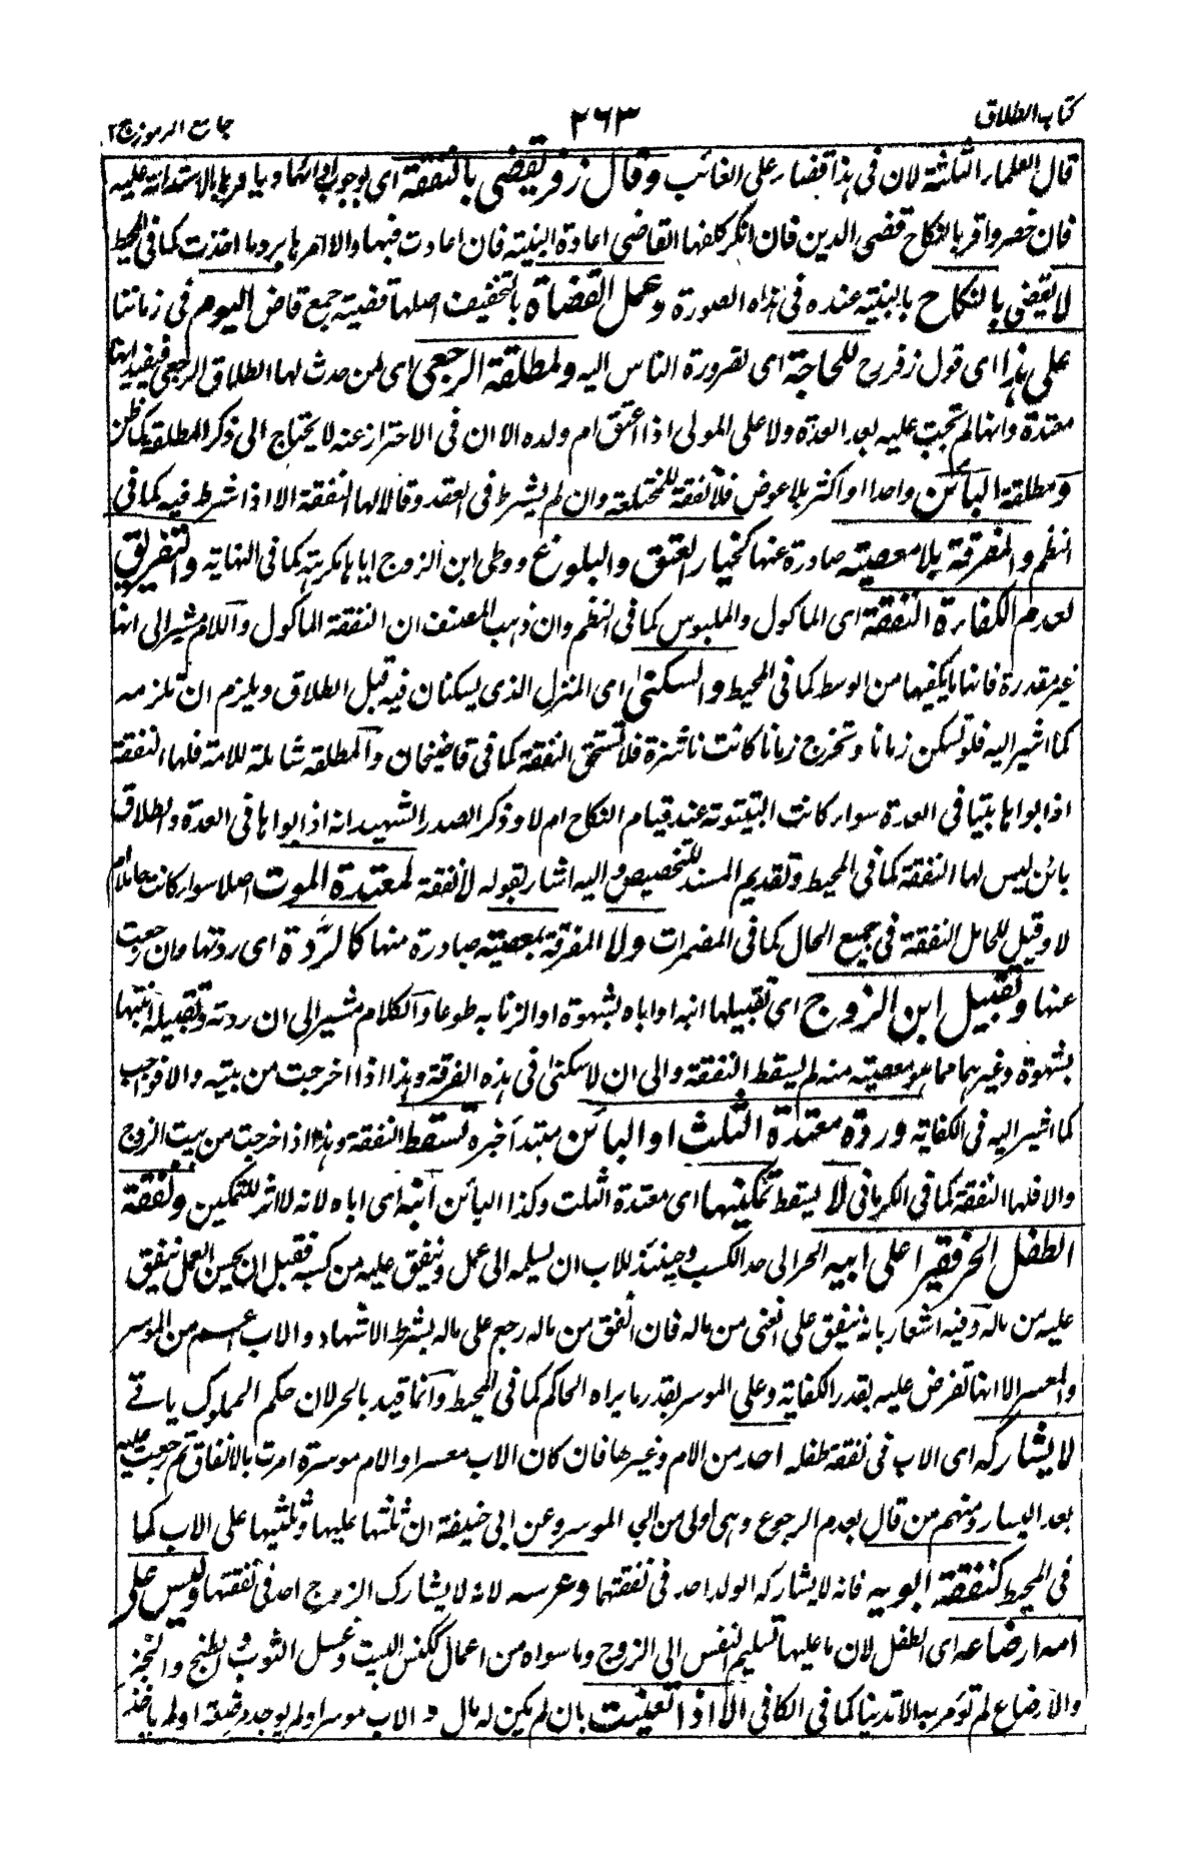 كتاب الطلاق ٢٦٣ جامع الرموز ج٢
قال العلماء الثلثة لان فى هذا قضاء على الغائب وقال زفر يقضى بالنفقة اى بوجوب ادائها ويامرها بالاستدانة عليه
فان حضر واقر بالنكاح قضى الدين فان انكر كلفها القاضى اعادة البينة فان اعادت فبها والا امرها برد ما اخذت كما فى المحيط
لا يقضى بالنكاح بالبينة عنده فى هذه الصورة وعمل القضاة بالتخفيف اصلها قضية جمع قاض اليوم فى زماننا
على هذا اى قول زفر رح للحاجة اى لضرورة الناس اليه ولمطلقة الرجعى اى لمن حدث لها الطلاق الرجعى فيفيد انها
معتدة وانها لم تجب عليه بعد العدة ولا على المولى اذا اعتق ام ولده الا ان فى الاحتراز عنه لا يحتاج الى ذكر المطلقة كما ظن
ومطلقة البائن واحدا او اكثر بلا عوض فلا نفقة للمختلعة وان لم يشرط فى العقد وقالا لها النفقة الا اذا شرط فيه كما فى
النظم والمفرقة بلا معصية صادرة عنها كخيار العتق والبلوغ ووطى ابن الزوج اياها مكرهة كما فى النهاية والتفريق
لعدم الكفاءة النفقة اى الماكول والملبوس كما فى النظم وان ذهب المصنف ان النفقة الماكول واللام مشير الى انها
غير مقدرة فانها ما يكفيها من الوسط كما فى المحيط والسكنى اى المنزل الذى يسكنان فيه قبل الطلاق ويلزم ان تلزمه
كما اشير اليه فلو تسكن زمانا وتخرج زمانا كانت ناشزة فلا تستحق النفقة كما فى قاضيخان والمطلقة شاملة للامة فلها النفقة
اذا بواها بيتا فى العدة سواء كانت البيتوتة عند قيام النكاح ام لا وذكر الصدر الشهيد انه اذا بواها فى العدة والطلاق
بائن ليس لها النفقة كما فى المحيط وتقديم المسند للتخصيص واليه اشار بقوله لا نفقة لمعتدة الموت اصلا سواء كانت حاملا ام
لا وقيل للحامل النفقة فى جميع الحال كما فى المضمرات ولا المفرقة بمعصية صادرة منها كالردة اى ردتها وان رجعت
عنها وتقبيل ابن الزوج اى تقبيلها ابنه او اباه بشهوة او الزنا به طوعا والكلام مشير الى ان ردته وتقبيله ابنتها
بشهوة وغيرهما مما هو معصية منه لم يسقط النفقة والى ان لا سكنى فى هذه الفرقة وهذا اذا اخرجت من بيته والا فواجب
كما اشير اليه فى الكفاية وردة معتدة الثلث او البائن مبتدأ خبره تسقط النفقة وهذا اذا خرجت من بيت الزوج
والا فلها النفقة كما فى الكرمانى لا يسقط تمكينها اى معتدة الثلث وكذا البائن ابنه اى اباه لانه لا اثر للتمكين ونفقة
الطفل الحر فقيرا على ابيه الحر الى حد الكسب وحينئذ للاب ان يسلمه الى عمل وينفق عليه من كسبه فقبل ان يحسن العمل ينفق
عليه من ماله وفيه اشعار بانه ينفق على الغنى من ماله فان انفق من ماله رجع على ماله بشرط الاشهاد والاب اعم من الموسر
والمعسر الا انها تفرض عليه بقدر الكفاية وعلى الموسر بقدر ما يراه الحاكم كما فى المحيط وانما قيد بالحر لان حكم المملوك ياتى
لا يشاركه اى الاب فى نفقة طفله احد من الام وغيرها فان كان الاب معسرا والام موسرة امرت بالانفاق ثم رجعت عليه
بعد اليسار ومنهم من قال بعدم الرجوع وهى اولى من اب الموسر وعن ابى حنيفة ان ثلثها عليها وثلثيها على الاب كما
فى المحيط كنفقة ابويه فانه لا يشاركه الولد احد فى نفقتهما وعرسه لانه لا يشارك الزوج احد فى نفقتها وليس على
امه ارضاعه اى الطفل لان ما عليها تسليم النفس الى الزوج وما سواه من اعمال ككنس البيت وغسل الثوب والطبخ والخبز
والارضاع لم تؤمر به الا تدينا كما فى الكافى الا اذا تعينت بان لم يكن له مال و الاب موسرا ولم يوجد مرضعة او لم ياخذ